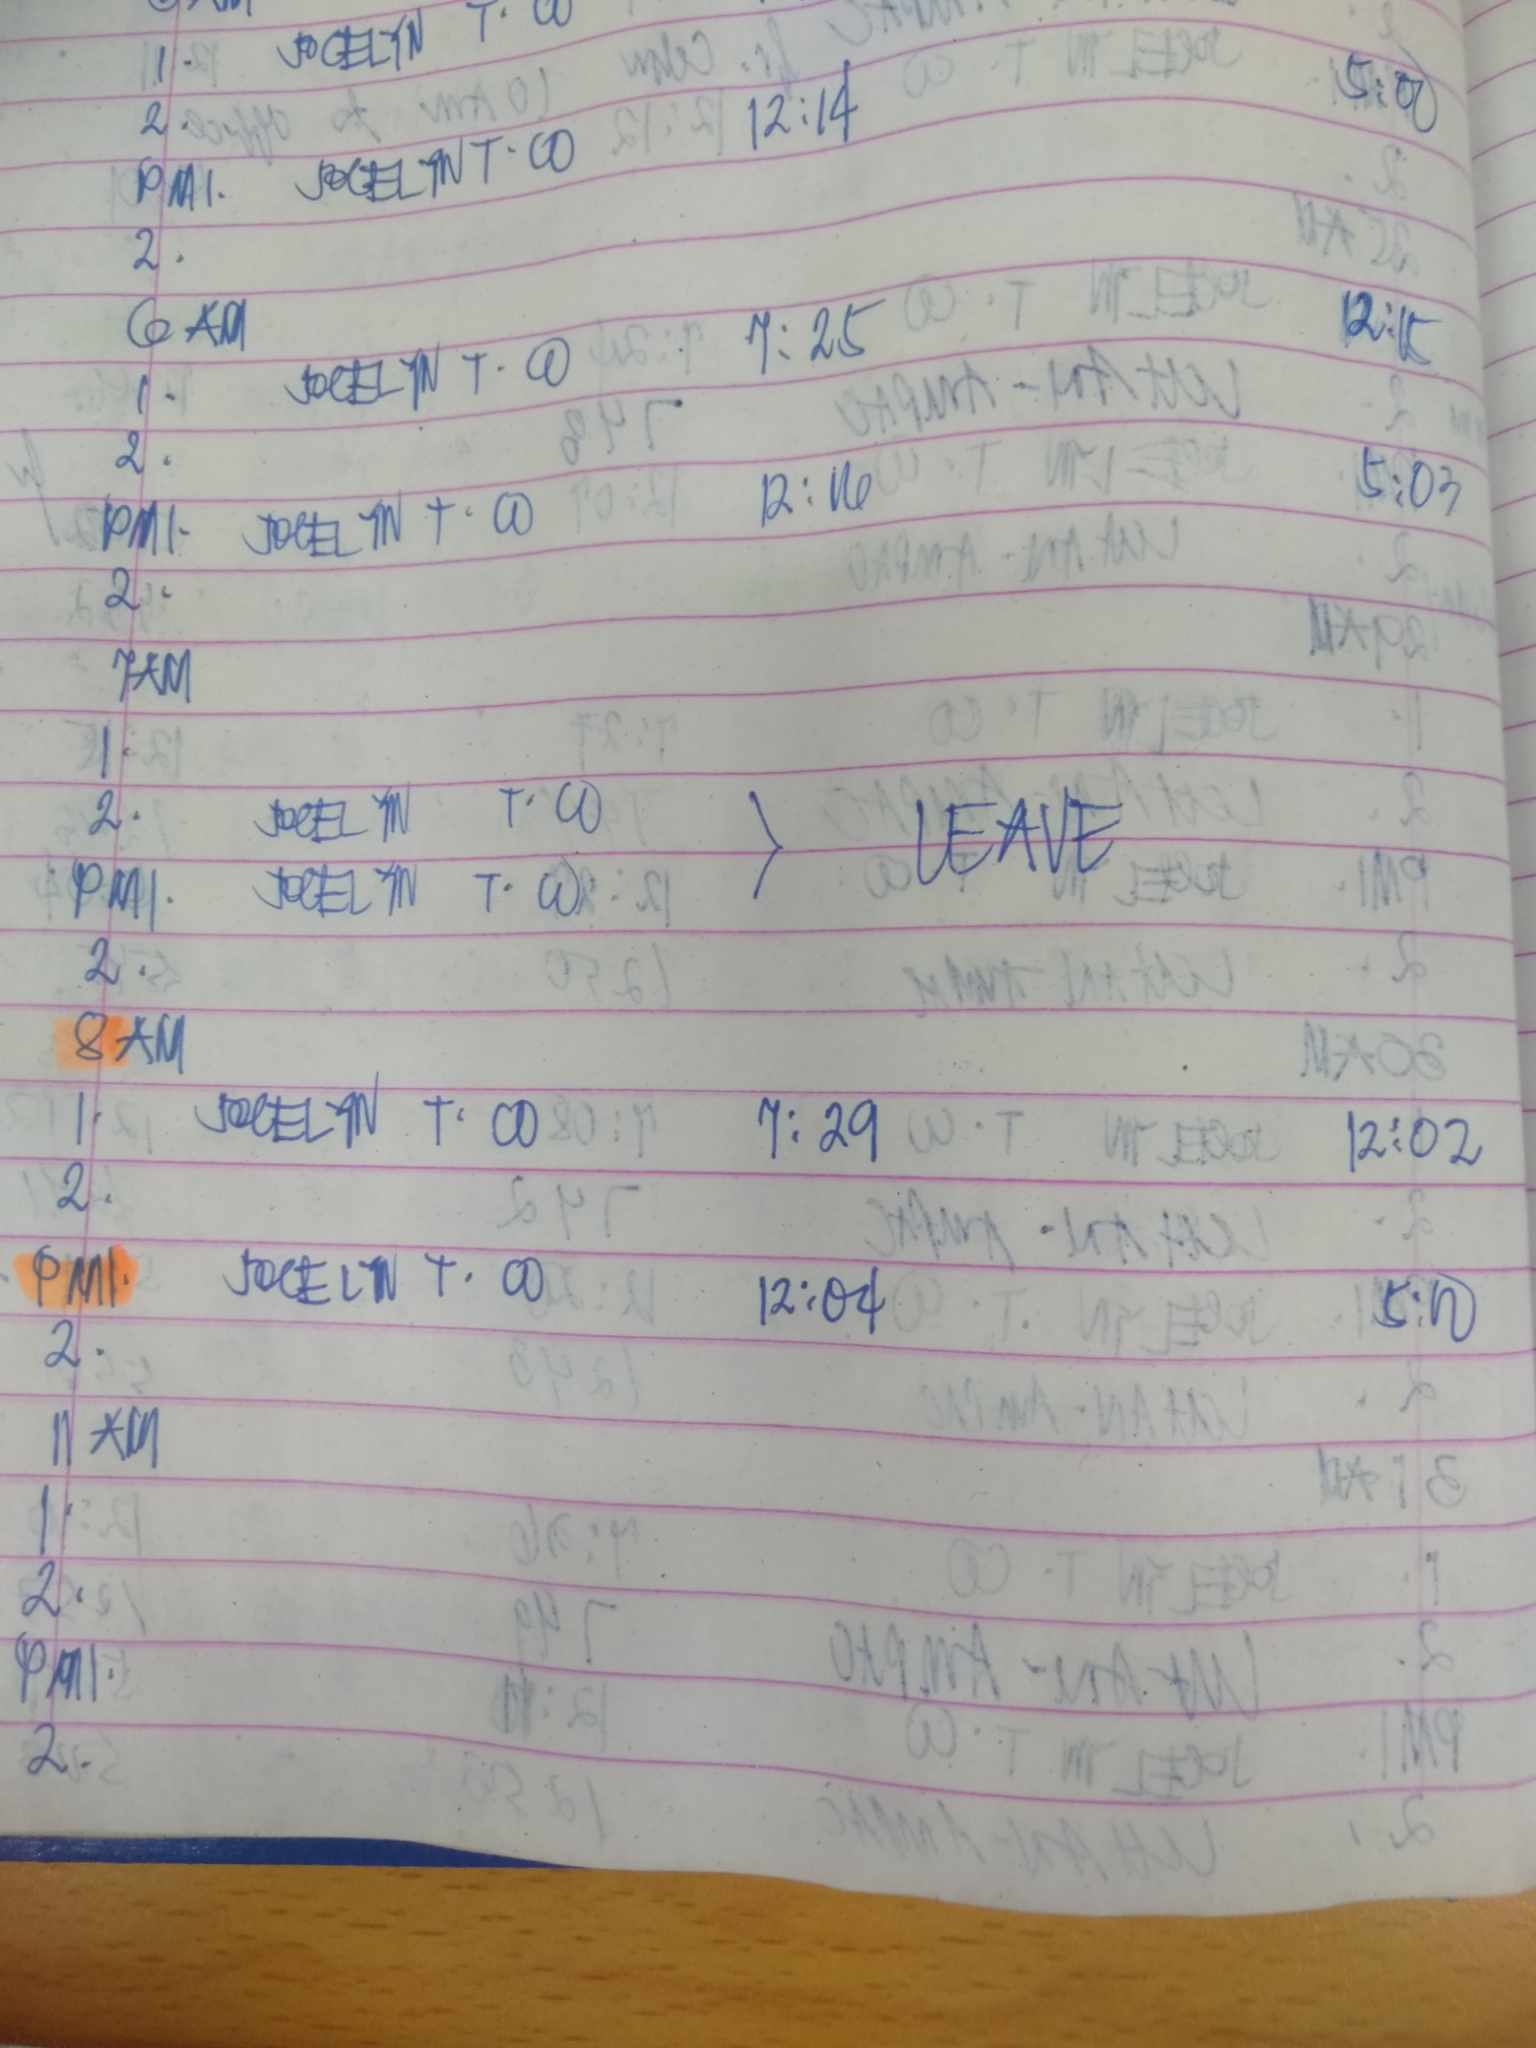 1. JOCELYN T. CO
2.
PM1. JOCELYN T. CO 12:14
2.
6 AM
1. JOCELYN T. CO 7:25 12:15
2.
PM1. JOCELYN T. CO 12:16 5:03
2.
7 AM
1.
2. JOCELYN T. CO LEAVE
PM1. JOCELYN T. CO
2.
8 AM
1. JOCELYN T. CO 7:29 12:02
2.
PM1. JOCELYN T. CO 12:04
2.
11 AM
1.
2.
PM1.
2.